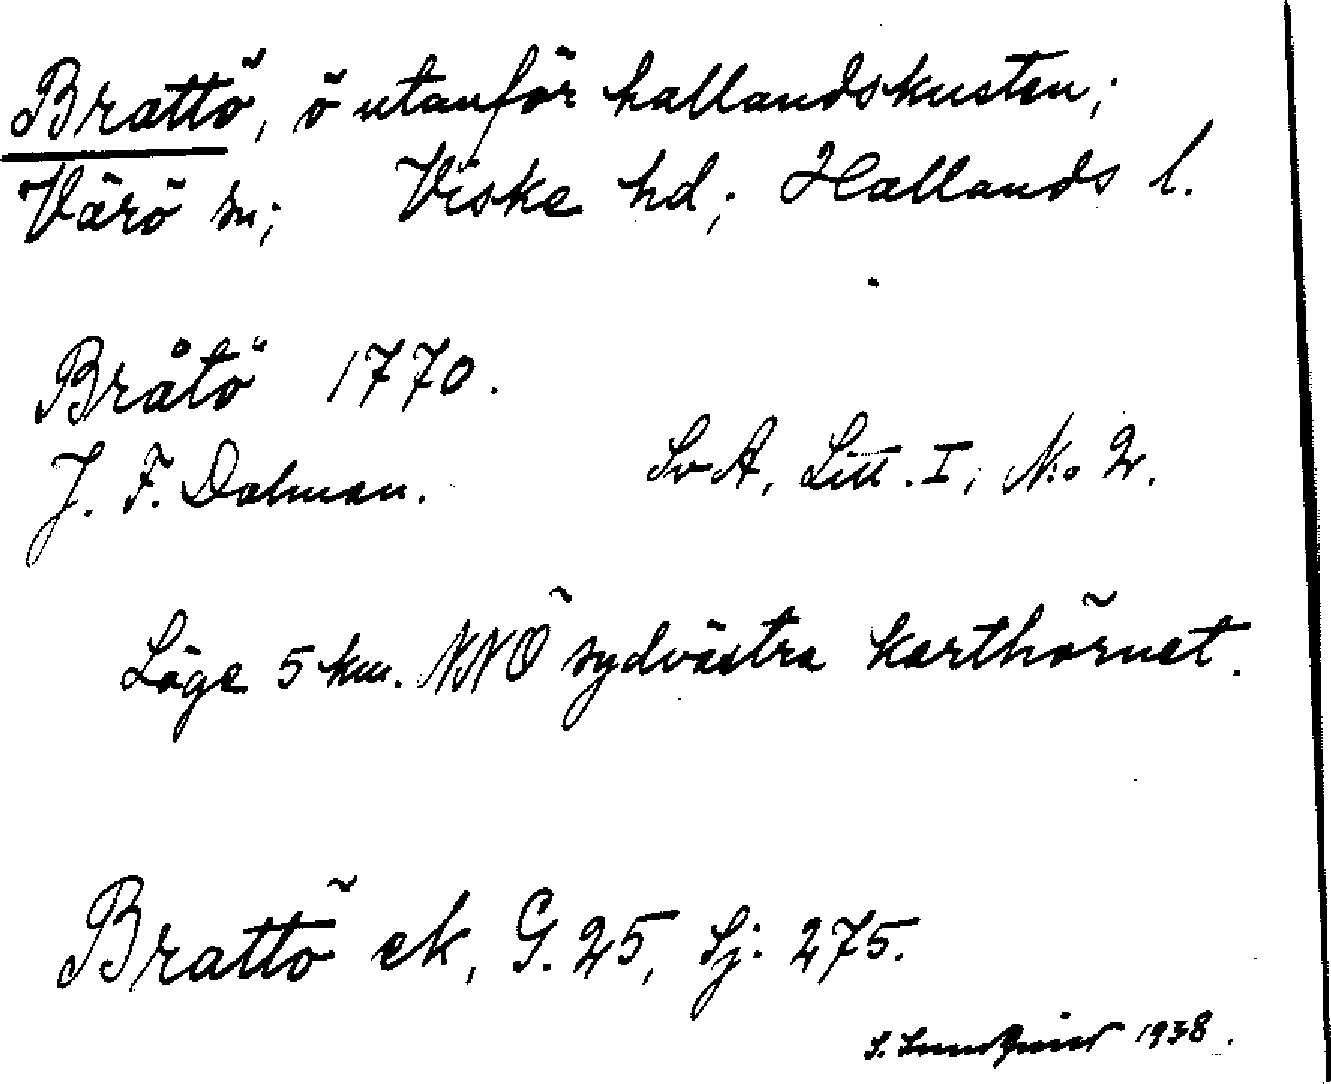 Brattö, ö utanför hallandskusten;
Värö sn; Viske hd; Hallands l.
Bråtö 1770.
J. F. Dalman. SvA, Litt. I, N:o 2.
Läge 5 km. NNÖ sydvästra karthörnet.
Brattö ek, G. 25, Sj: 275.
S. 1938.